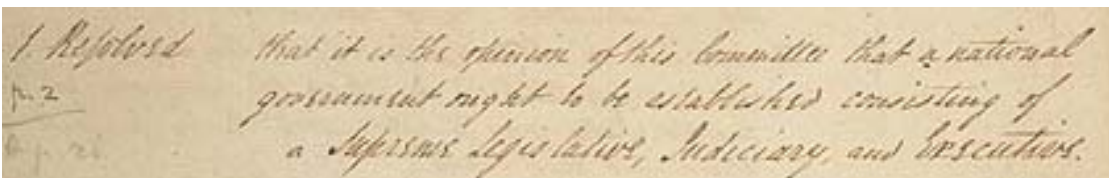 1. Resolved that it is the opinion of this Committee that a national
p. 2 government ought to be established consisting of
a Supreme Legislative, Judiciary, and Executive.